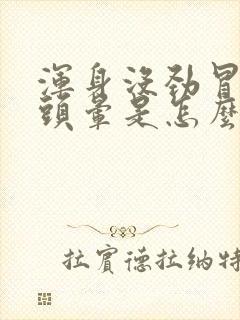 渾身沒勁冒
頭暈是怎麼
拉賓德拉納特